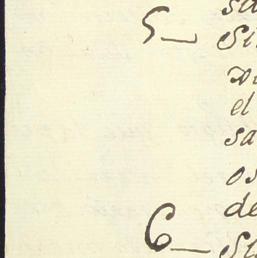 sa
5— Si
el
sa
os
de
6— Si